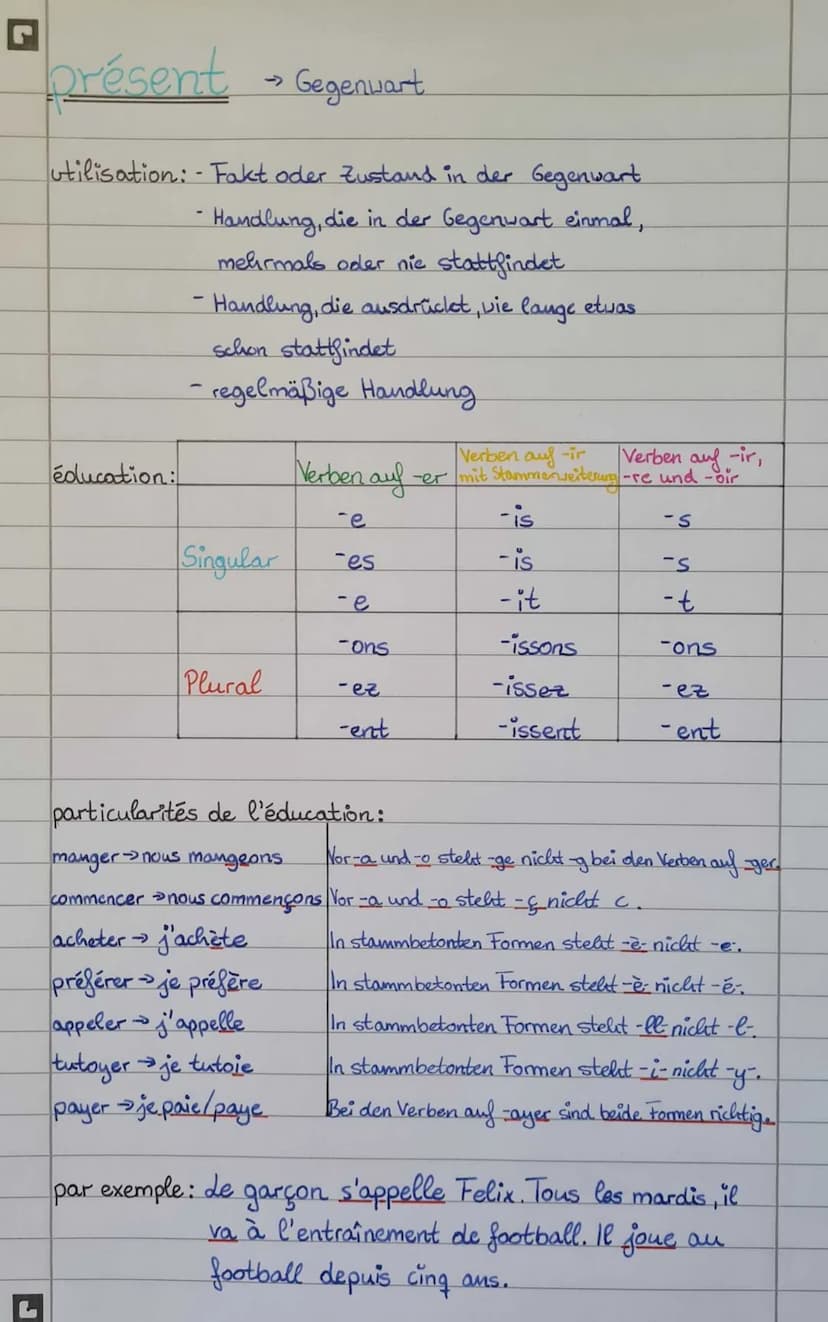 présent → Gegenwart
utilisation: - Fakt oder Zustand in der Gegenwart
- Handlung, die in der Gegenwart einmal,
mehrmals oder nie stattfindet
- Handlung, die ausdrückt, wie lange etwas
schon stattfindet
- regelmäßige Handlung
éducation: Verben auf -er Verben auf -ir mit Stammerweiterung Verben auf -ir, -re und -oir
-e -is -s
Singular -es -is -s
-e -it -t
-ons -issons -ons
Plural -ez -issez -ez
-ent -issent -ent
particularités de l'éducation:
manger → nous mangeons Vor -a und -o steht -ge nicht -g bei den Verben auf -ger.
commencer → nous commençons Vor -a und -o steht -ç nicht c.
acheter → j'achète In stammbetonten Formen steht -è- nicht -e-.
préférer → je préfère In stammbetonten Formen steht -è- nicht -é-.
appeler → j'appelle In stammbetonten Formen steht -ll- nicht -l-.
tutoyer → je tutoie In stammbetonten Formen steht -i- nicht -y-.
payer → je paie/paye Bei den Verben auf -ayer sind beide Formen richtig.
par exemple: Le garçon s'appelle Felix. Tous les mardis, il
va à l'entraînement de football. Il joue au
football depuis cinq ans.